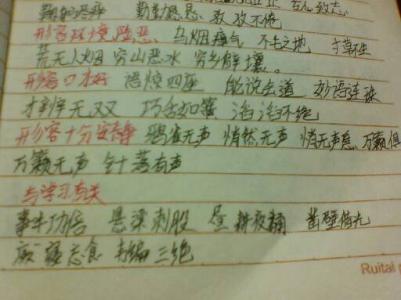 勤勤恳恳 孜孜不倦
形容环境险恶: 乌烟瘴气 不毛之地 寸草不生
荒无人烟 穷山恶水 穷乡僻壤。
形容口才好 语惊四座 能说会道 妙语连珠
才辩无双 巧舌如簧 滔滔不绝
形容十分安静 鸦雀无声 悄然无声 悄无声息 万籁俱
万籁无声 针落有声
与学习有关
事半功倍 悬梁刺股 昼耕夜诵 凿壁偷光
废寝忘食 韦编三绝
Ruitai